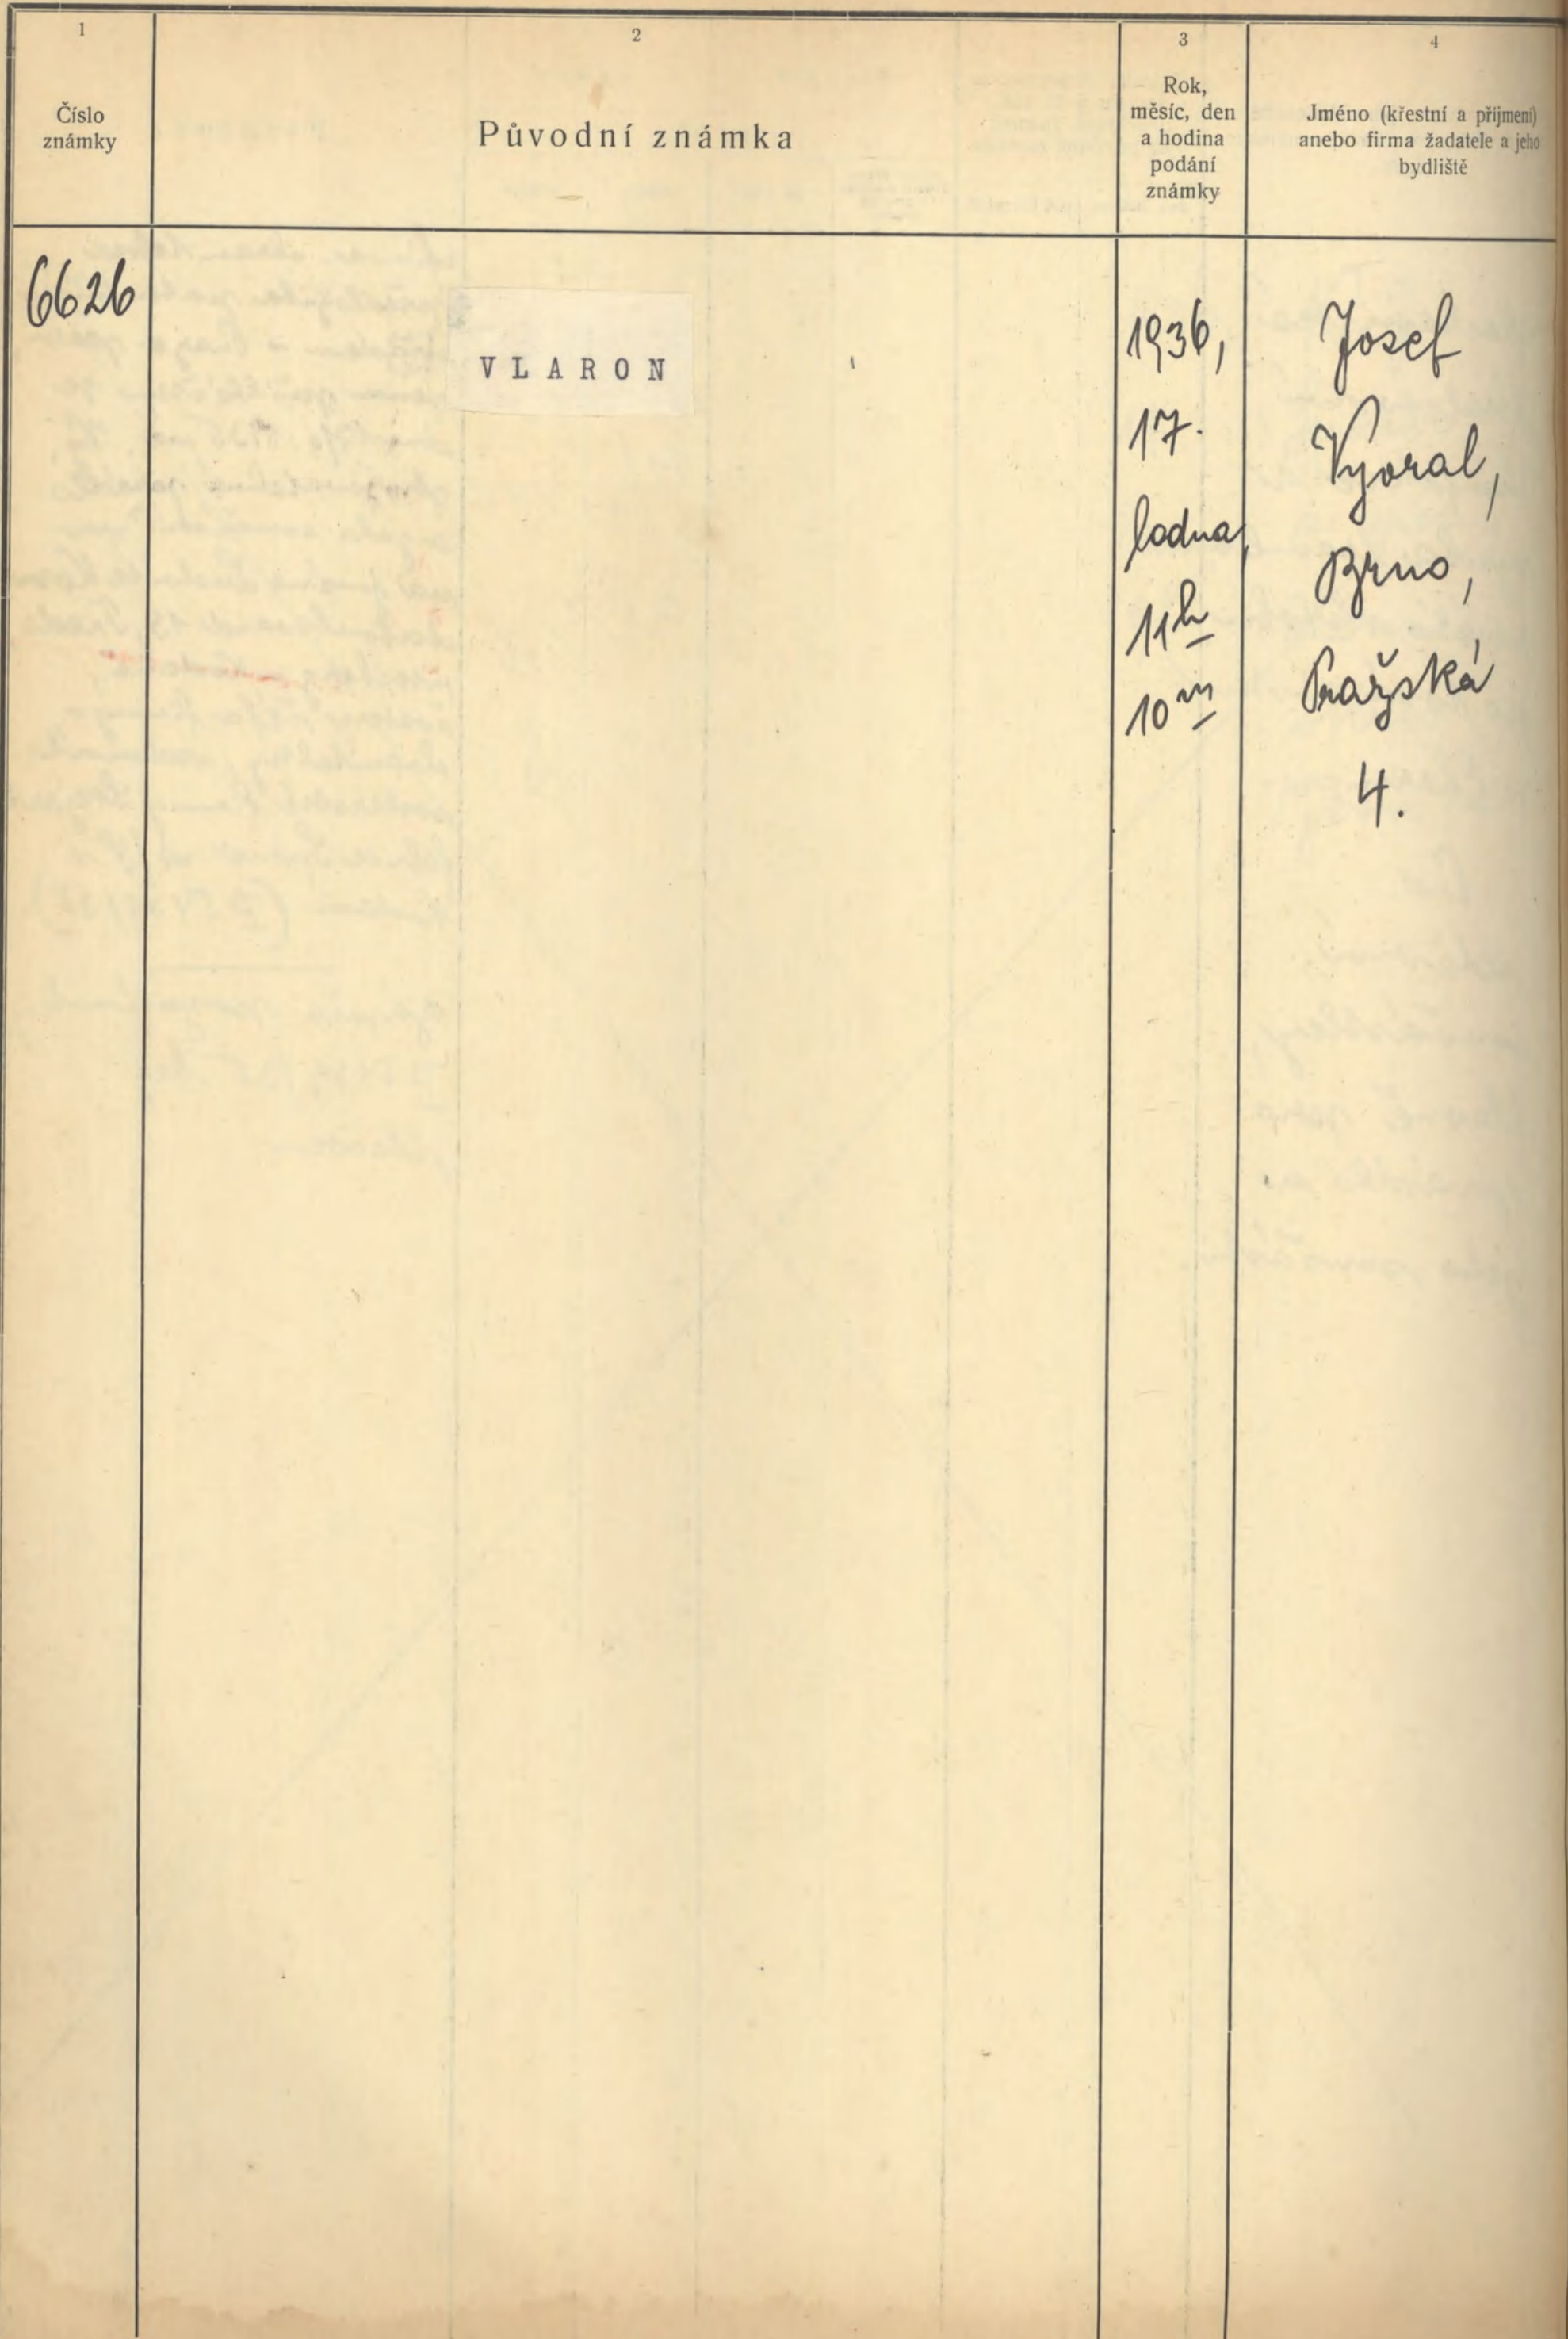 1
Číslo
známky
2
Původní známka
3
Rok,
měsíc, den
a hodina
podání
známky
4
Jméno (křestní a příjmení)
anebo firma žadatele a jeho
bydliště
6626
VLARON
1936,
17.
ledna,
11h
10m
Josef
Vyoral,
Brno,
Pražská
4.